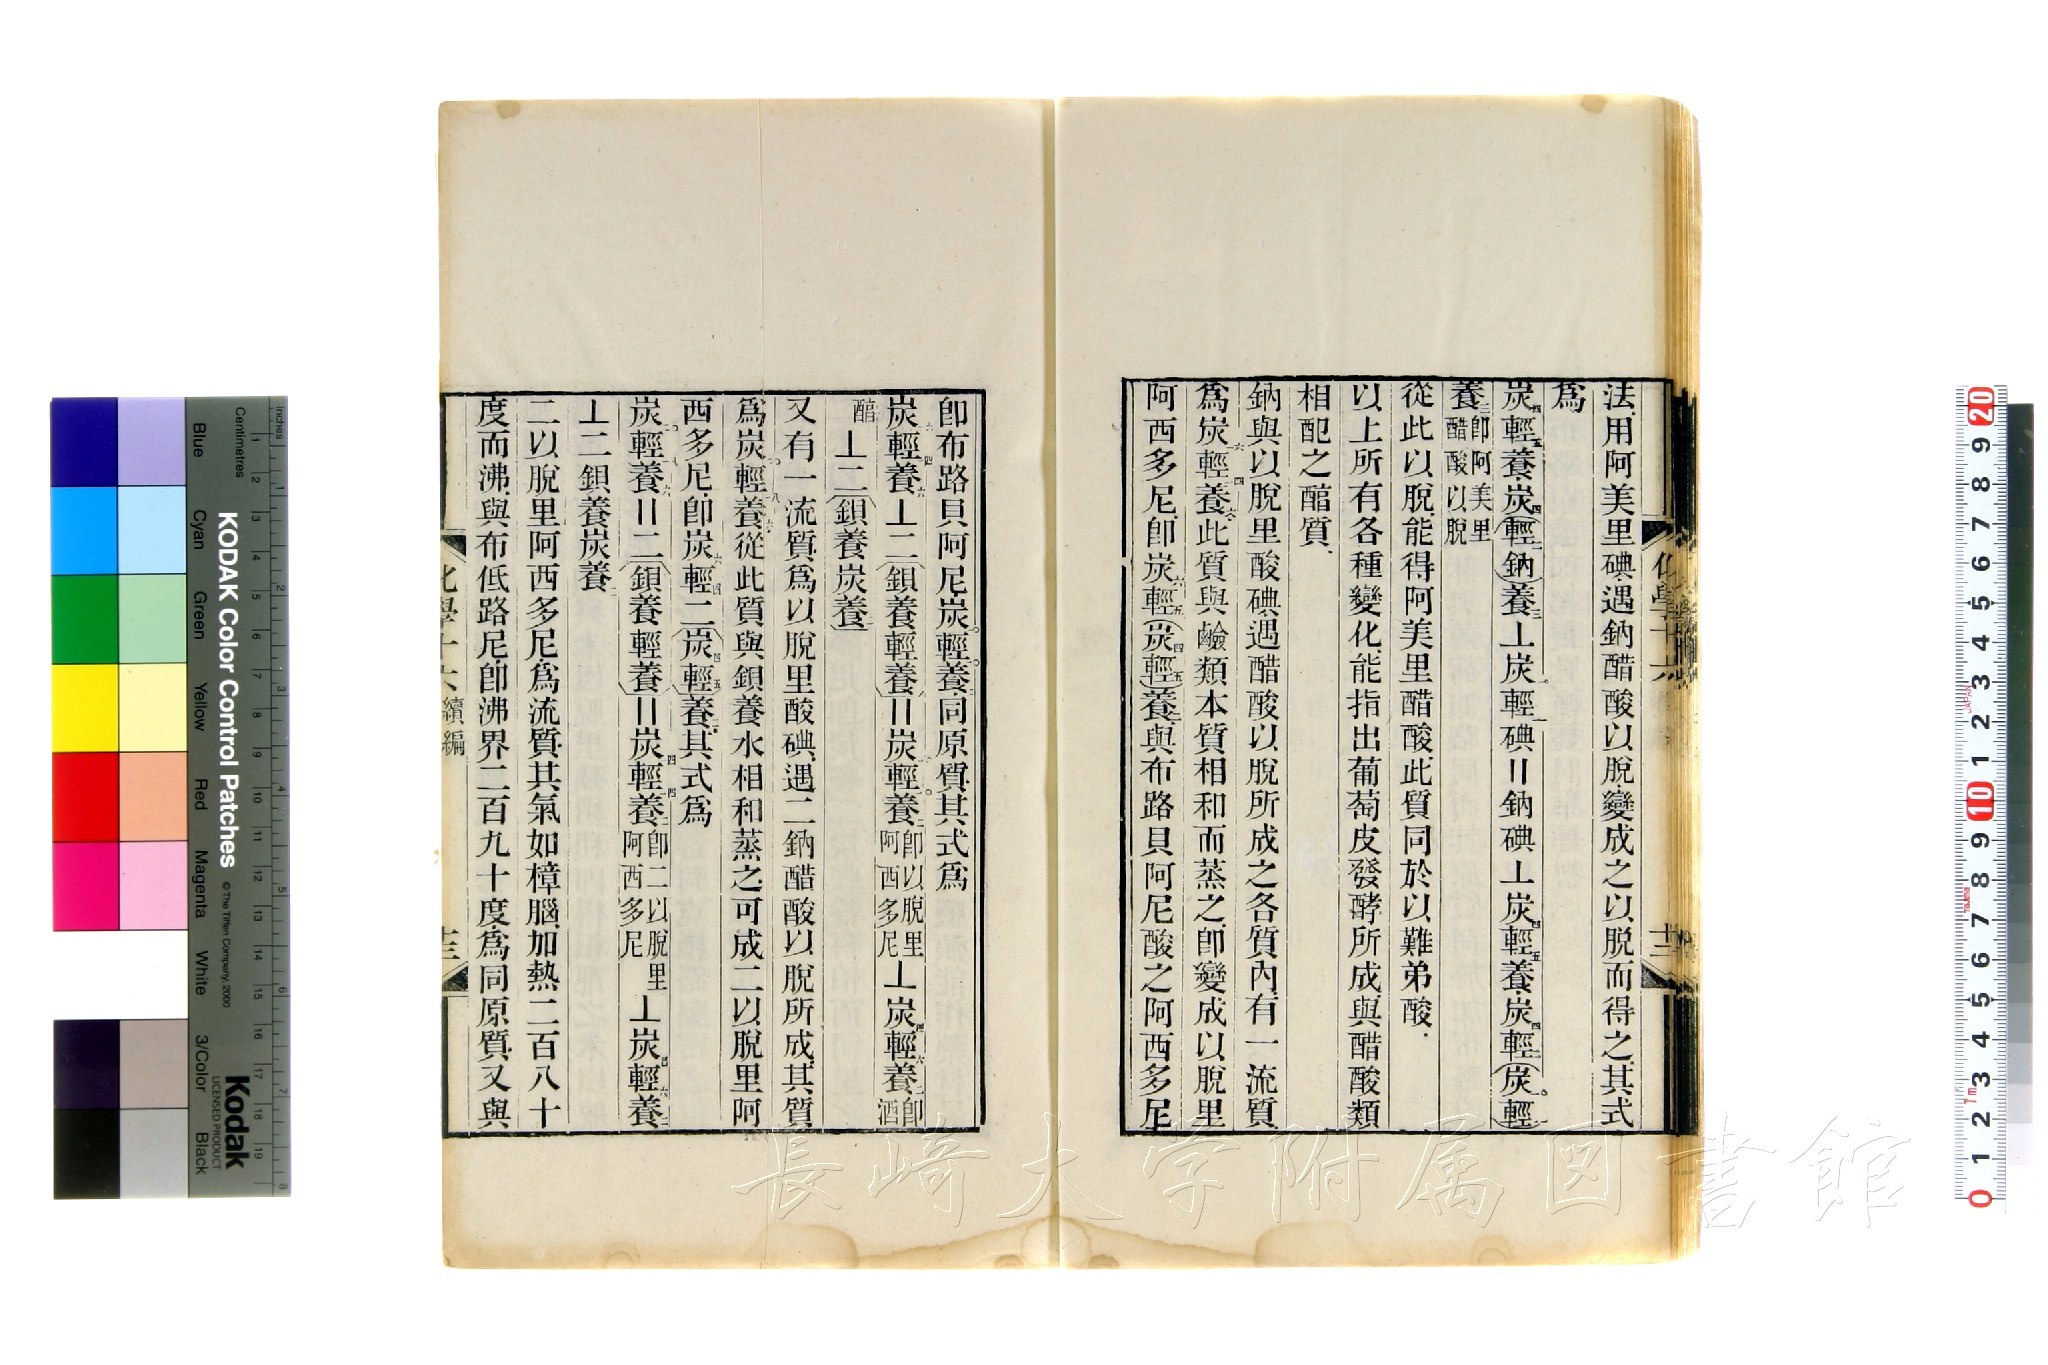 法用阿美里碘遇鈉醋酸以脫變成之以脫而得之其式
爲
炭四輕五養炭四(輕二鈉)養三⊥炭輕碘॥鈉碘⊥炭四輕五養炭四輕二(炭一〇輕一一)
養三卽阿美里醋酸以脫
從此以脫能得阿美里醋酸此質同於以難弟酸
以上所有各種變化能指出葡萄皮發酵所成與醋酸類
相配之醕質
鈉與以脫里酸碘遇醋酸以脫所成之各質內有一流質
爲炭輕養此質與鹼類本質相和而蒸之卽變成以脫里
阿西多尼卽炭六輕五(炭四輕五)養二與布路貝阿尼酸之阿西多尼
化學十六
十二
卽布路貝阿尼炭輕養同原質其式爲
炭輕養⊥二(鋇養輕養)॥炭輕養二卽以脫里阿西多尼⊥炭四輕六養二卽酒
醕⊥二(鋇養炭養二)
又有一流質爲以脫里酸碘遇二鈉醋酸以脫所成其質
爲炭輕養從此質與鋇養水相和蒸之可成二以脫里阿
西多尼卽炭六輕四二(炭四輕五)養二其式爲
炭輕養॥二(鋇養輕養)॥炭輕養二卽二以脫里阿西多尼⊥炭四輕六養二
⊥二鋇養炭養二
二以脫里阿西多尼爲流質其氣如樟腦加熱二百八十
度而沸與布低路尼卽沸界二百九十度爲同原質又與
化學十六 續編
十三
KODAK Color Control Patches
© The Tiffen Company, 2000
Kodak
LICENSED PRODUCT
Inches
Centimetres
Blue
Cyan
Green
Yellow
Red
Magenta
White
3/Color
Black
JAPAN
長崎大学附属図書館